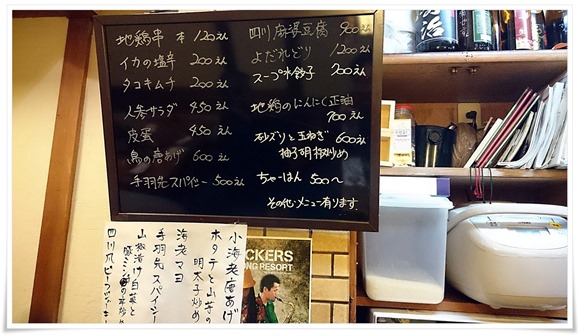 地鶏串 本 120えん
イカの塩辛 200えん
タコキムチ 200えん
人参サラダ 450えん
皮蛋 450えん
鳥の唐あげ 600えん
手羽先スパイシー 500えん
四川麻婆豆腐 900えん
よだれどり 1200えん
スープ水餃子 700えん
地鶏のにんにく正油
700えん
砂ズリと玉ねぎ 600えん
柚子胡椒炒め
ちゃーはん 500〜
その他・メニュー有ります
小海老唐あげ
ホタテと山芋の
明太子炒め
海老マヨ
手羽先スパイシー
山椒漬け白菜と
CKERS
NG RESORT